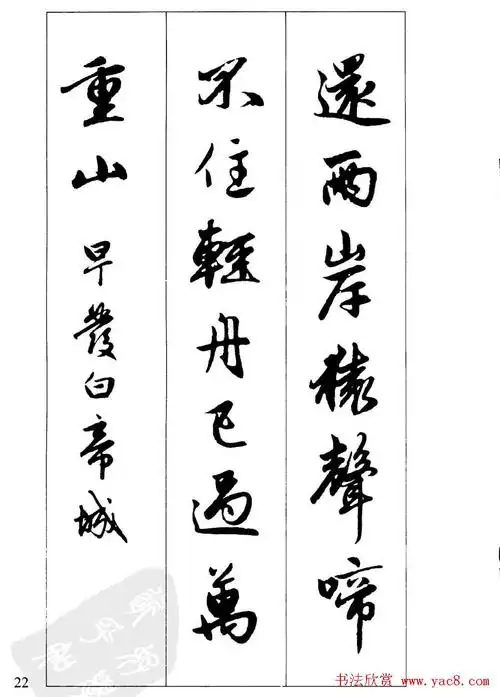 還兩岸猿聲啼
不住輕舟已過萬
重山 早發白帝城
22
书法欣赏
www.yac8.com